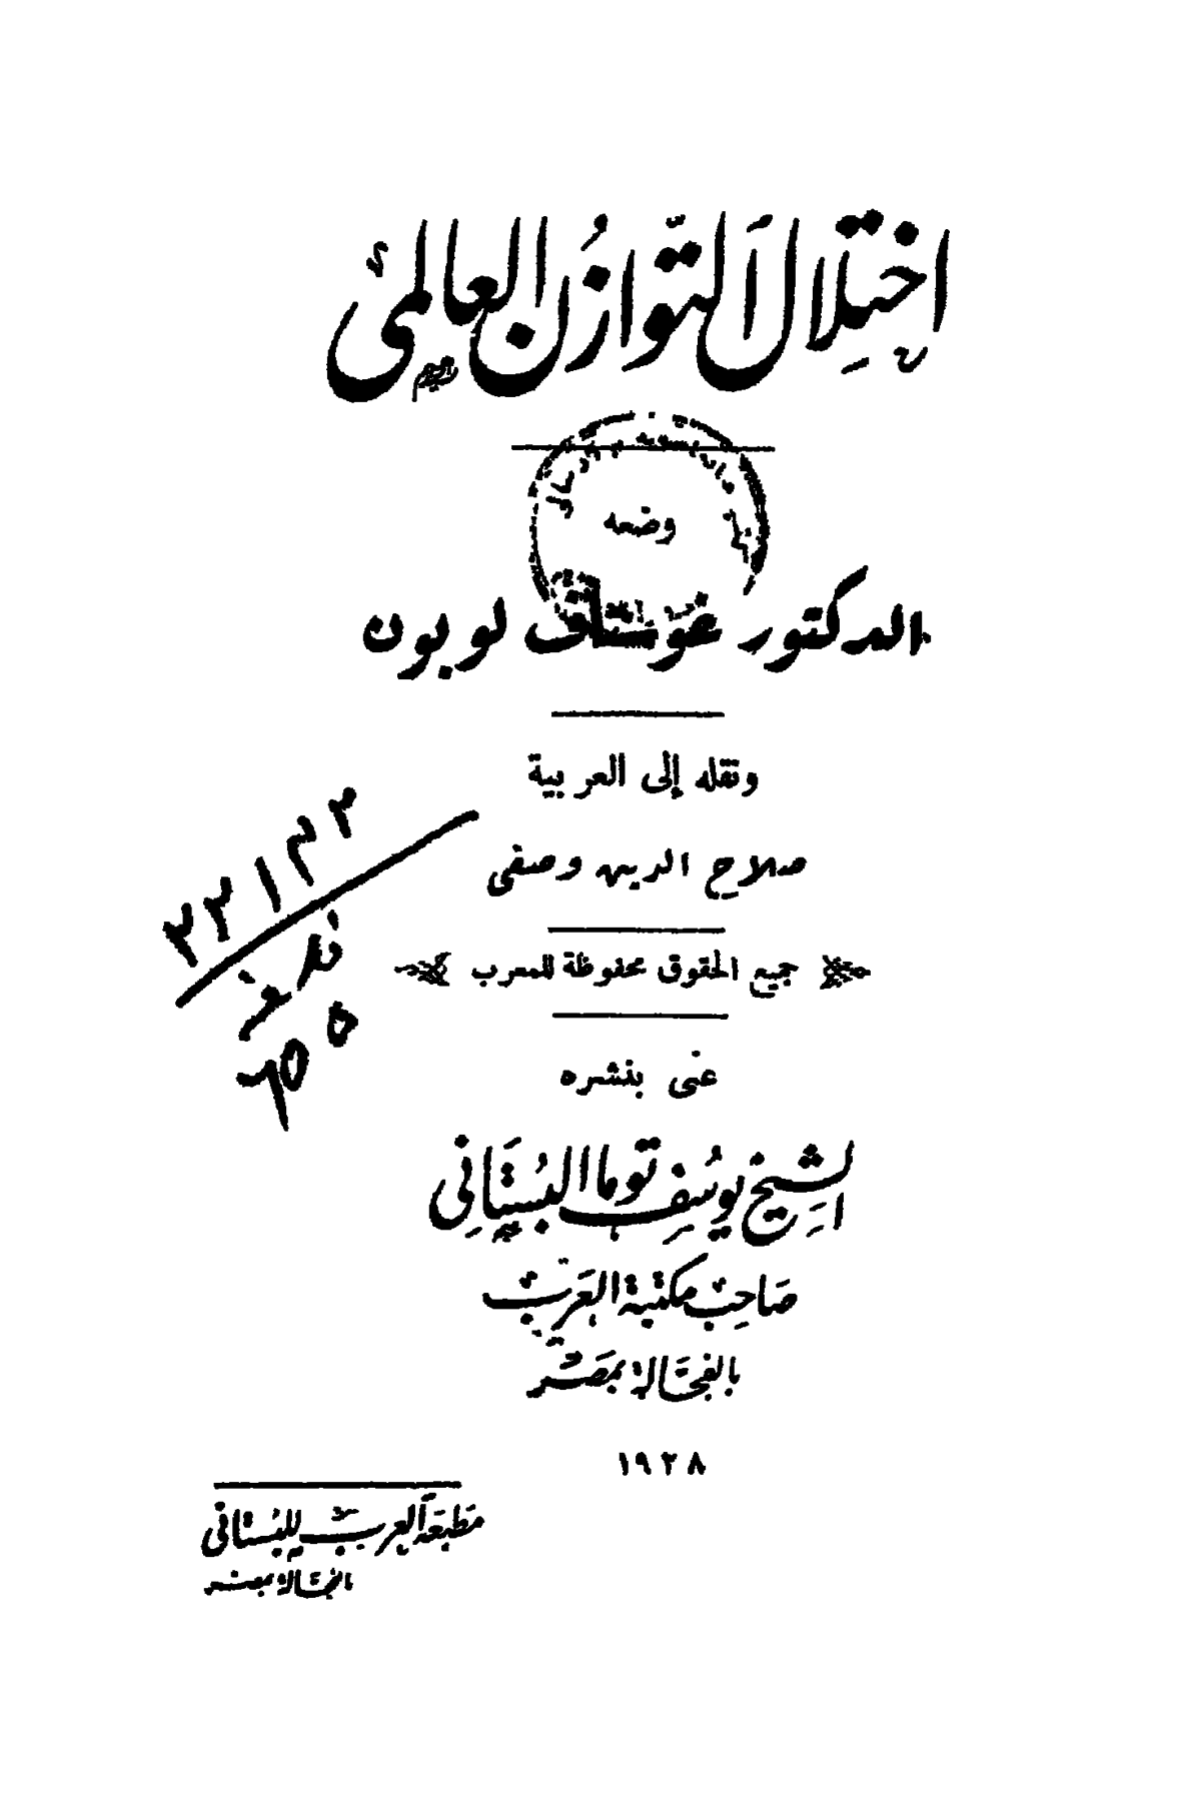 اختلال التوازن العالمي
وضعه
الدكتور غوستاف لوبون
ونقله إلى العربية
صلاح الدين وصفى
جميع الحقوق محفوظة للمعرب
عنى بنشره
الشيخ يوسف توما البستاني
صاحب مكتبة العرب
بالفجالة بمصر
١٩٢٨
مطبعة العرب للبستاني
بالفجالة بمصر